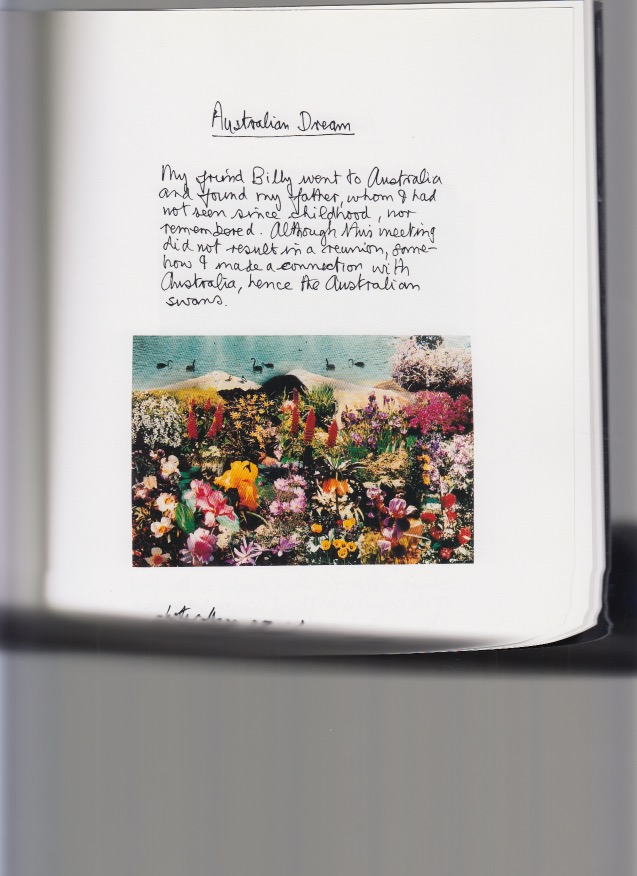 Australian Dream
My friend Billy went to Australia
and found my father, whom I had
not seen since childhood, nor
remembered. Although this meeting
did not result in a reunion, some-
how I made a connection with
Australia, hence the Australian
swans.